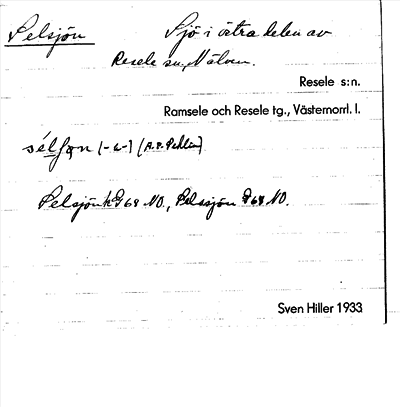 Selsjön Sjö i östra delen av
Resele sn, Nälven.
Resele s:n.
Ramsele och Resele tg., Västernorrl. l.
Selsjön k G 68 NO., Selssjön G 68 NO.
Sven Hiller 1933